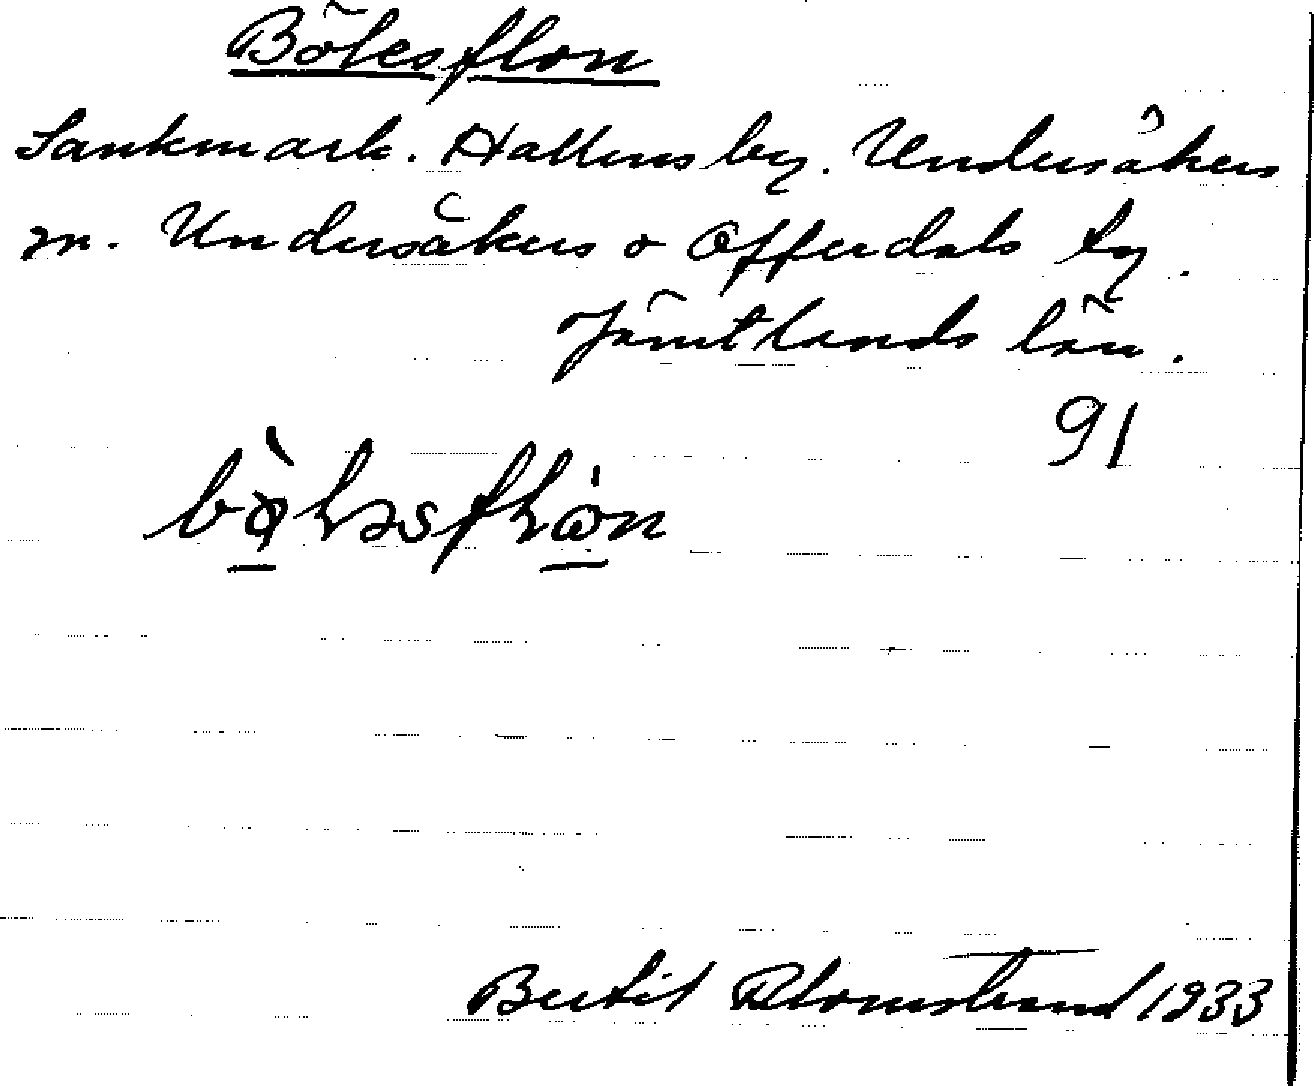 Bölesflon
Sankmark. Hallens by. Undersåkers
sn. Undersåkers o Offerdals tg.
Jämtlands län.
91
Bertil Blomstrand 1933